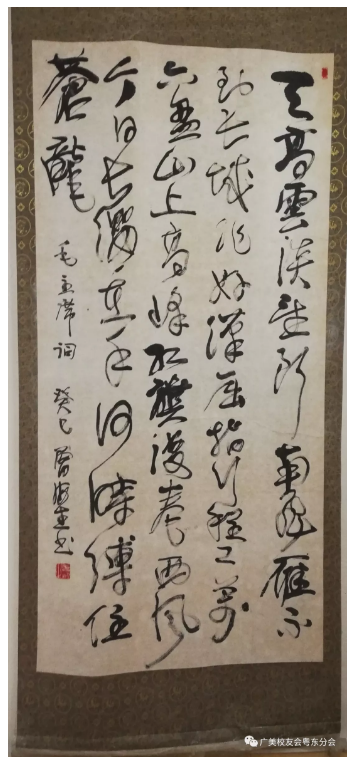 天高雲淡望断南飛雁不
到长城非好漢屈指行程二萬
六盤山上高峰红旗漫卷西风
今日长缨在手何時縛住
蒼龍
毛主席词 癸巳 书
广美校友会粤东分会